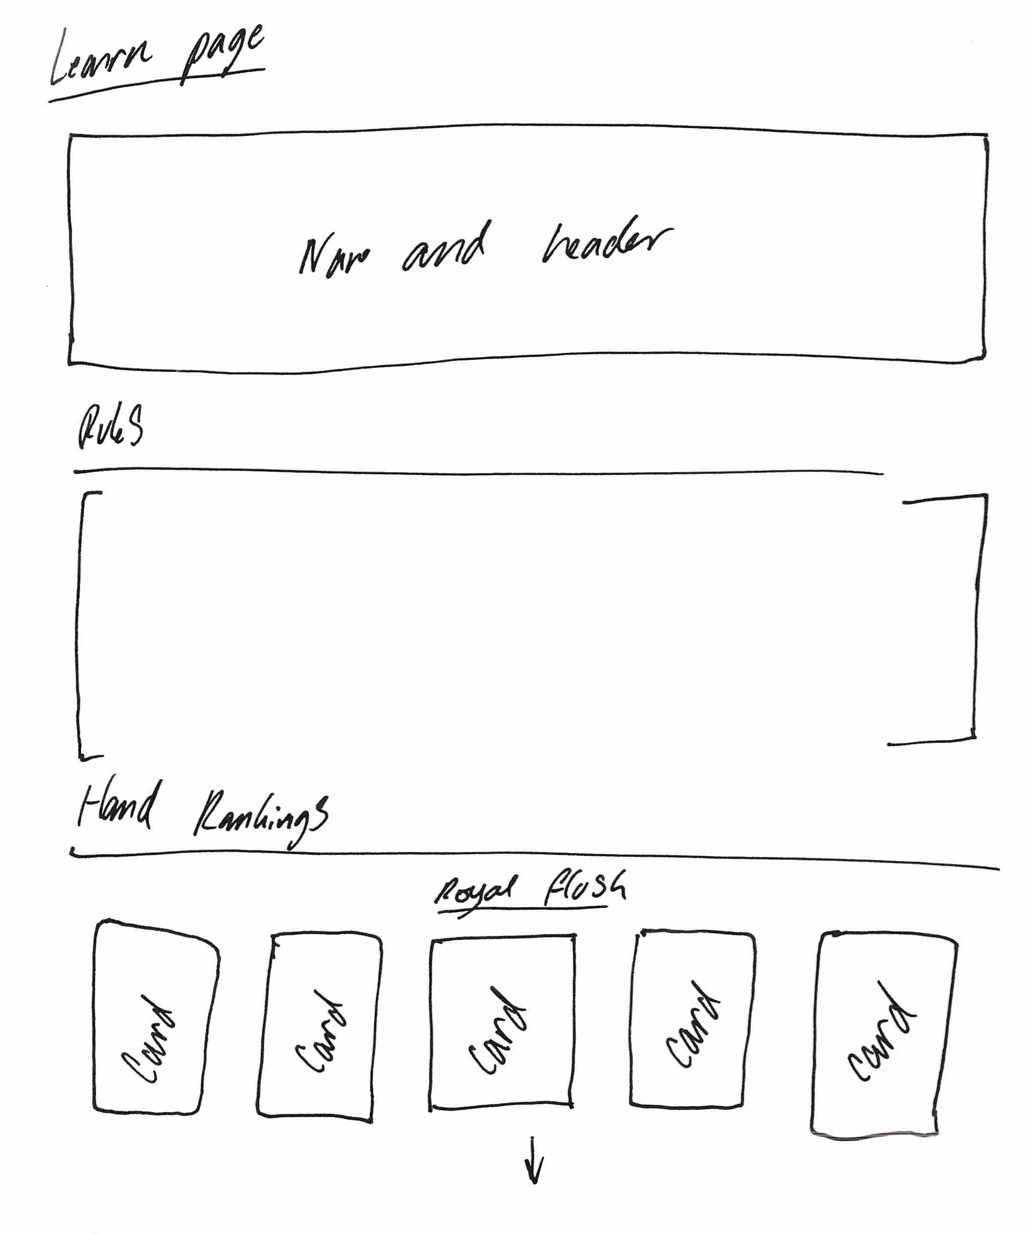 Learn page
Nav and header
Rules
Hand Rankings
Royal flush
Card Card Card Card Card